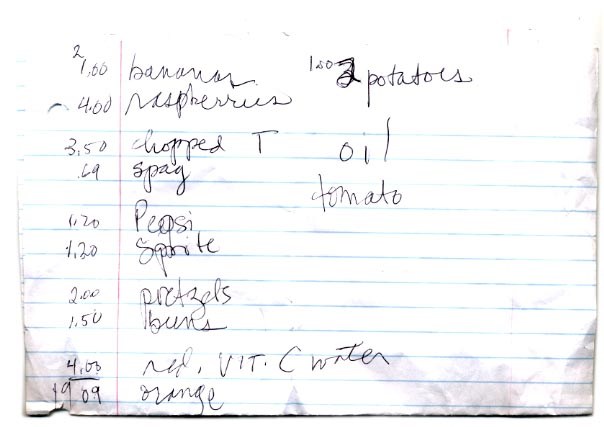 2
1.00 bananas
4.00 raspberries
3.50 chopped T
.69 spag
1.20 Pepsi
1.20 Sprite
2.00 pretzels
1.50 buns
4.00 red. VIT. C water
19 09 orange
1.00 2 potatoes
oil
tomato